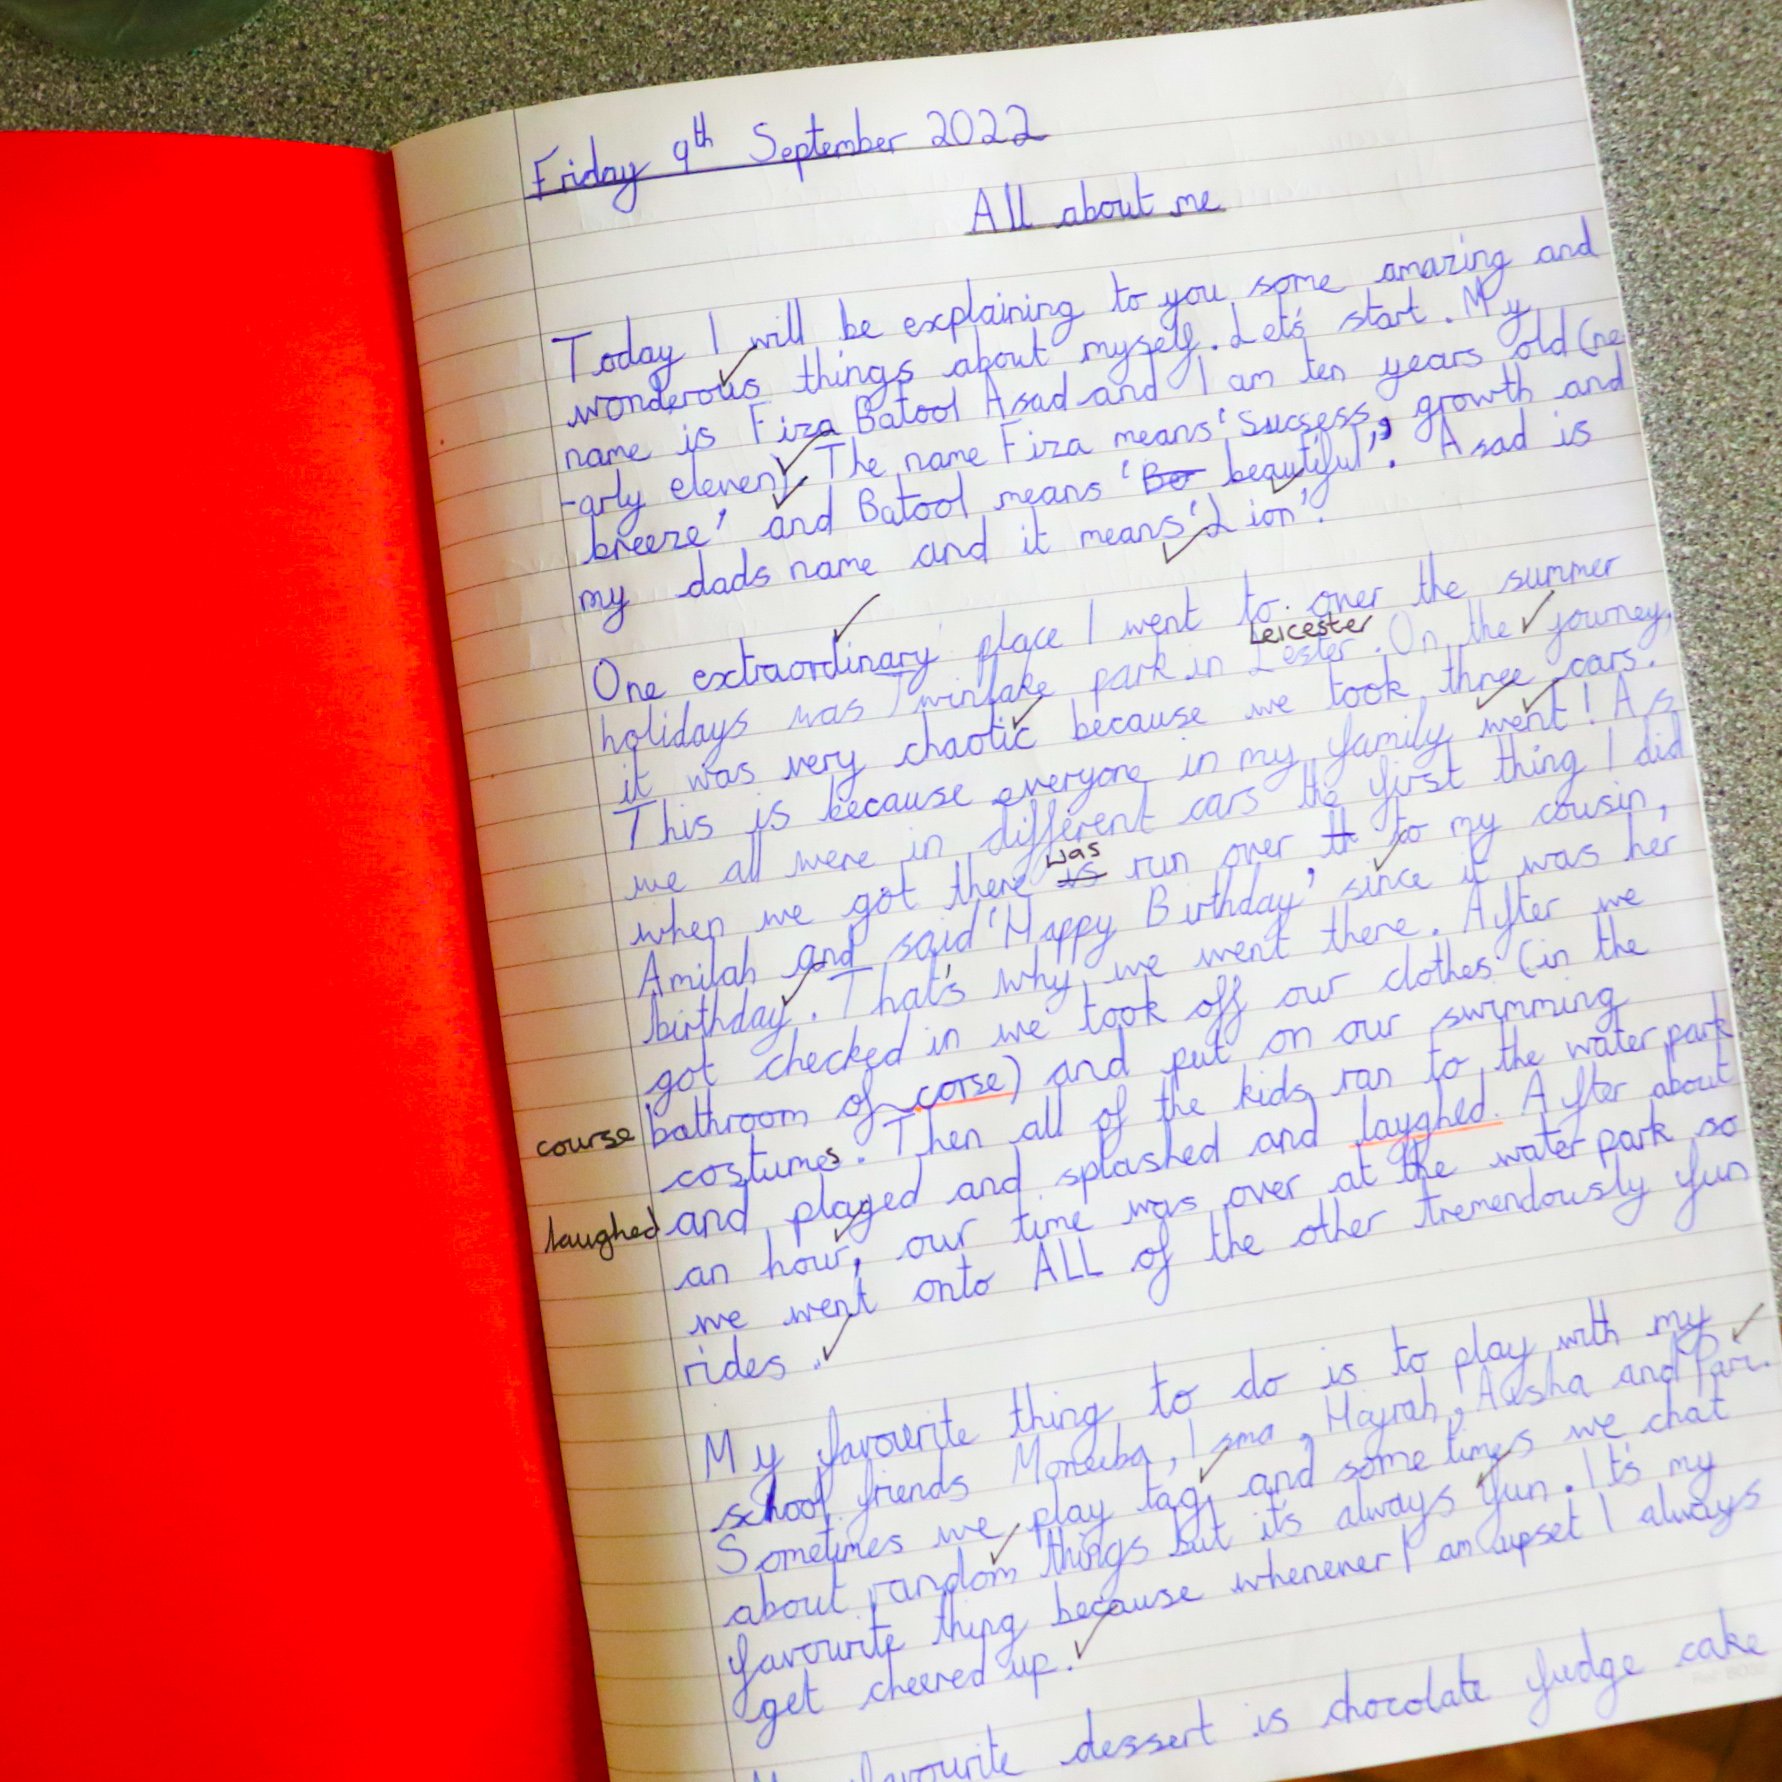 Friday 9th September 2022
All about me
Today I will be explaining to you some amazing and
wonderous things about myself. Let's start. My
name is Fiza Batool Asad and I am ten years old (ne
-arly eleven). The name Fiza means 'Sucsess, growth and
breeze' and Batool means 'Be beautiful'. Asad is
my dads name and it means 'Lion'.
One extraordinary place I went to over the summer
Leicester
holidays was Twinlake park in Lester. On the journey,
it was very chaotic because we took three cars.
This is because everyone in my family went! As
we all were in different cars the first thing I did
was
when we got there is run over tt to my cousin,
Amilah and said 'Happy Birthday' since it was her
birthday. That's why we went there. After we
got checked in we took off our clothes (in the
course bathroom of corse) and put on our swimming
costumes. Then all of the kids ran to the water park
laughed and played and splashed and layghed. After about
an hour, our time was over at the water park so
we went onto ALL of the other tremendously fun
rides.
My favourite thing to do is to play with my
school friends Moneeba, Isma, Hayrah, Aisha and Pari.
Sometimes we play tag, and some times we chat
about random things but it's always fun. It's my
favourite thing because whenever I am upset I always
get cheered up.
My favourite dessert is chocolate fudge cake